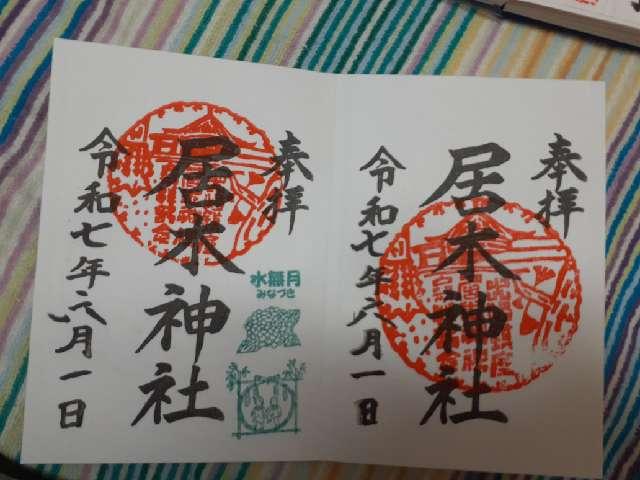 奉拝
居木神社
令和七年六月一日
奉拝
居木神社
水無月
みなづき
令和七年六月一日